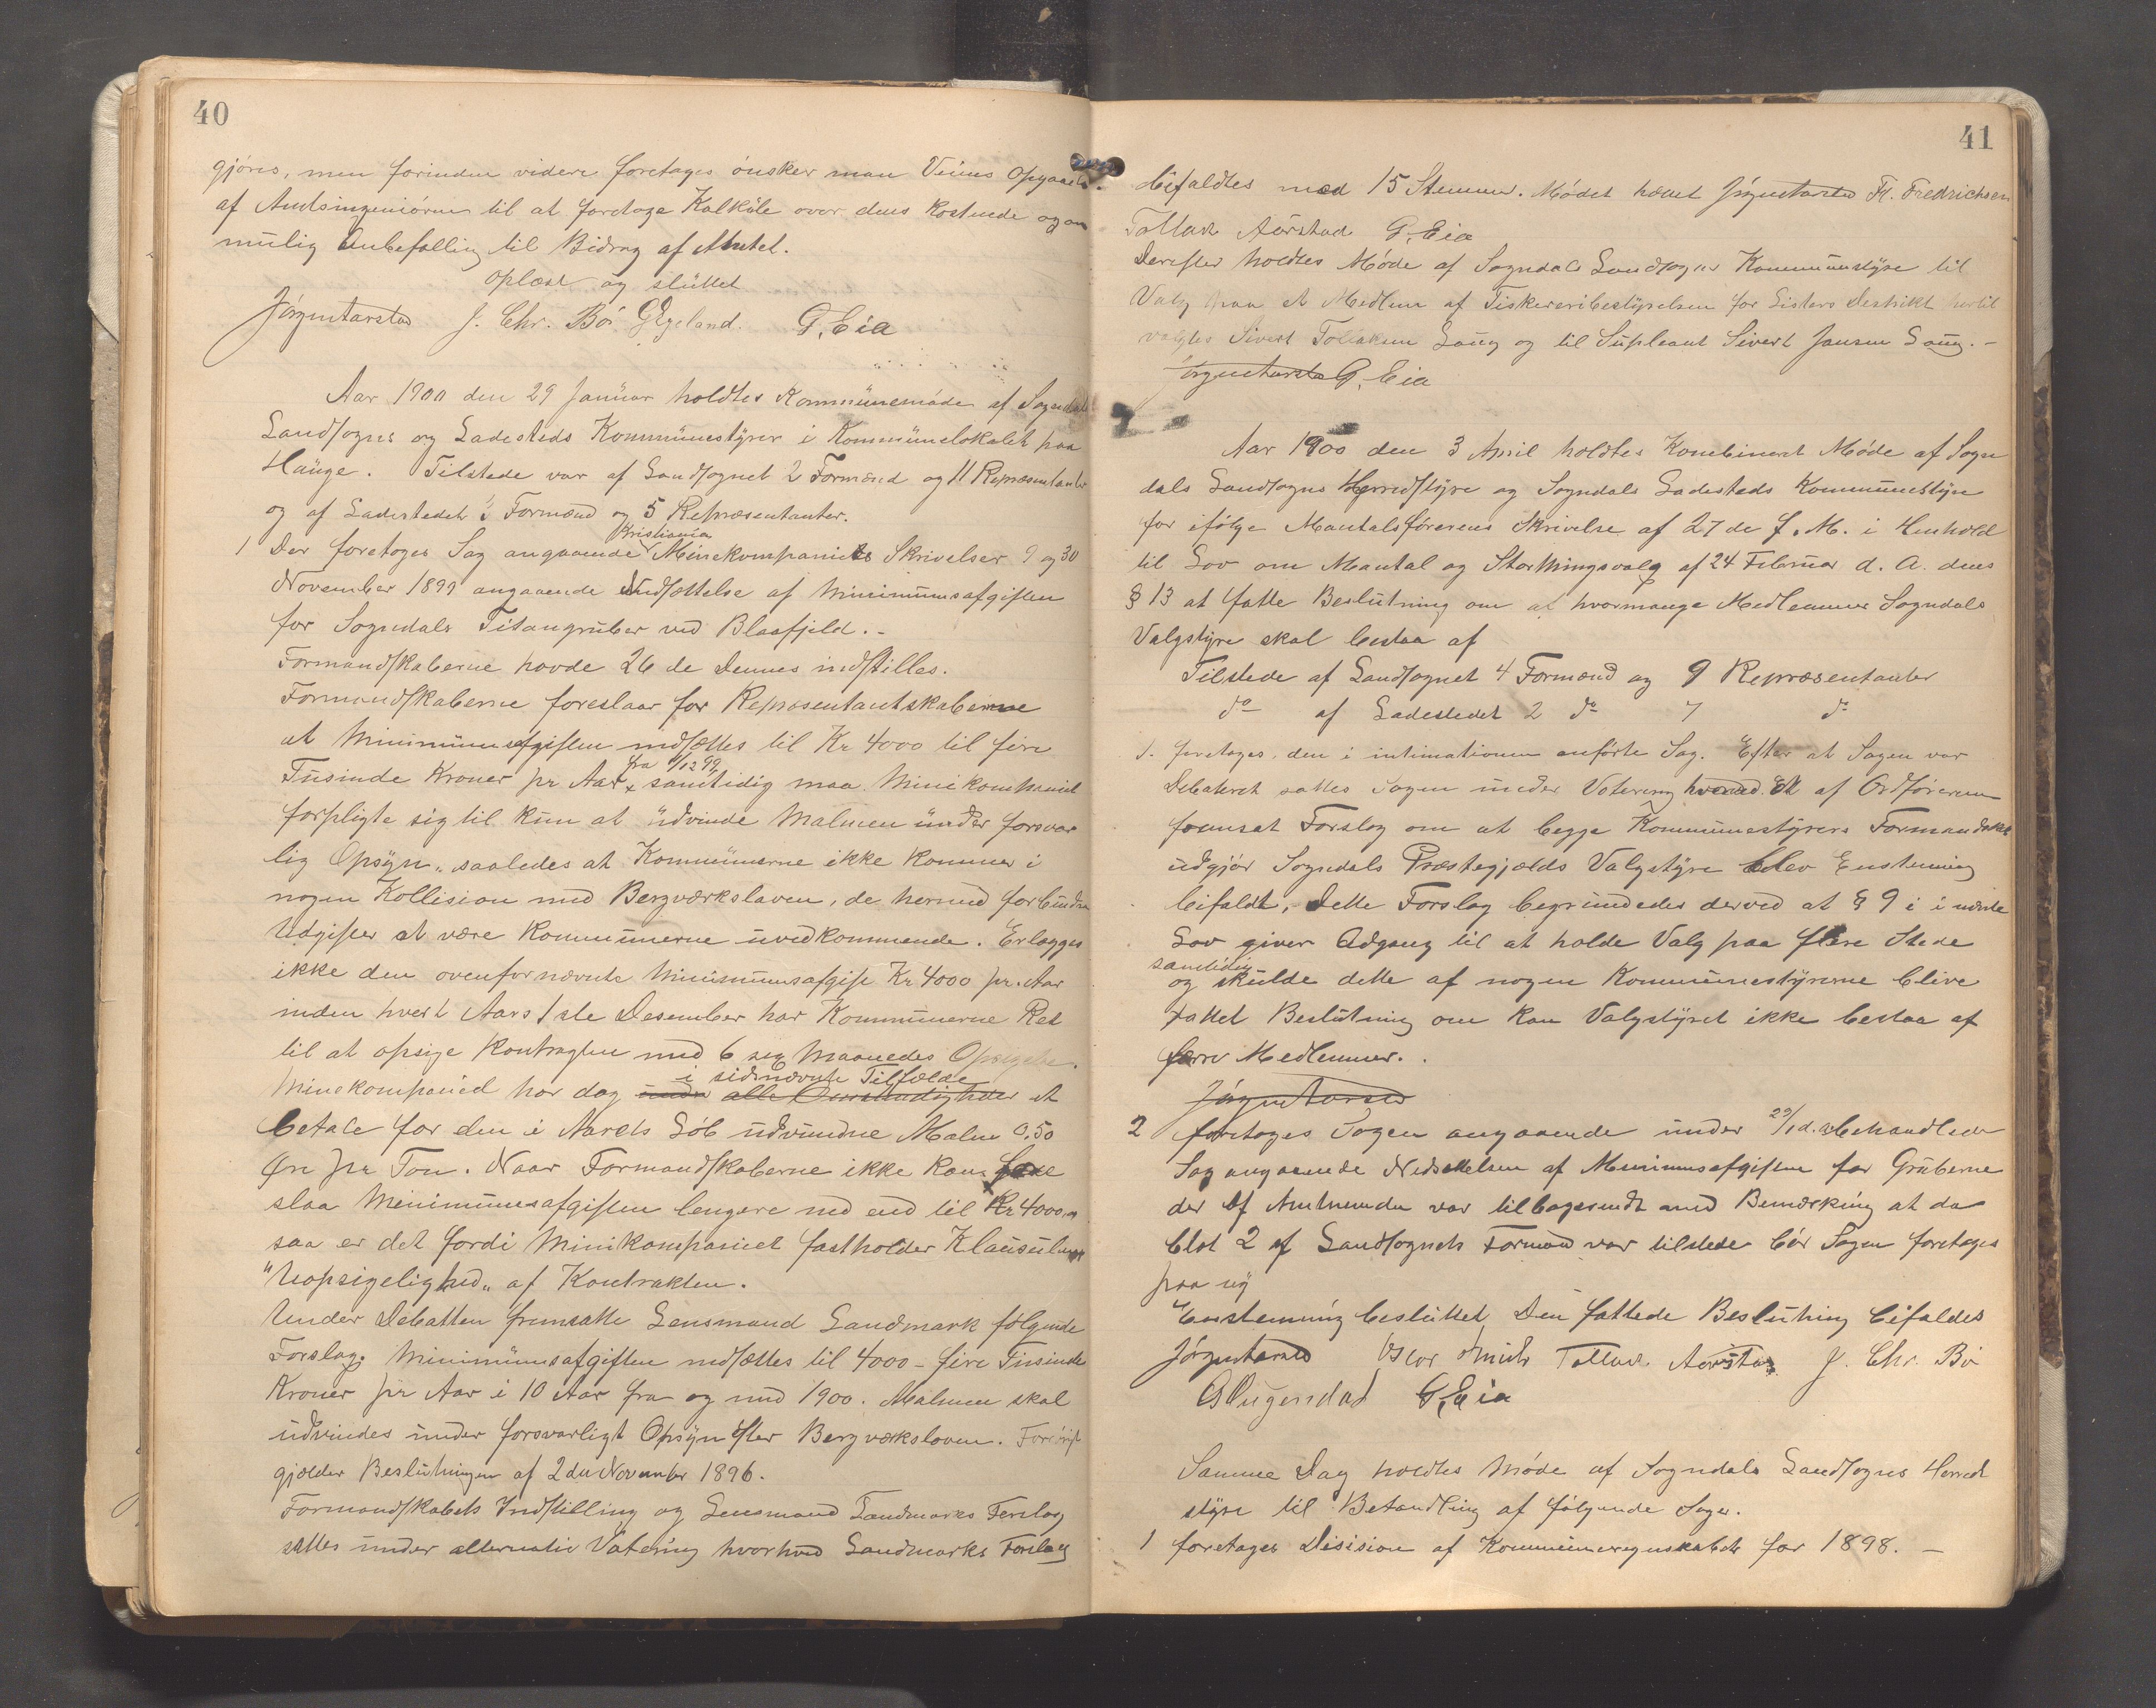 40
gjøres, men forinden videre foretages ønsker man Veiens Opgaaelse
af Amtsingeniøren til at foretage Kalkyle over dens kostende og om
mulig Anbefalling til Bidrag af Amtet.
Oplæst og sluttet
J. Chr. Bø G. Egeland. G. Eia
Aar 1900 den 29 Januar holdtes Kommunemøde af Sogndals
Landsogns og Ladesteds Kommunestyrer i Kommunelokalet paa
Hauge. Tilstede var af Landsognet 2 Formænd og 11 Repræsentanter
og af Ladestedet Formænd og 5 Repræsentanter.
Kristiania
1 Der foretoges Sag angaaende Minekompaniets Skrivelser 9 og 30
November 1899 angaaende Nedsættelse af Minimumsafgiften
for Sogndals Titangruber ved Blaafjeld. -
Formandskaberne havde 26 de Dennes indstilles.
Formandskaberne foreslaar for Repræsentantskaberne
at Minimumsafgiften nedsættes til Kr 4000 til fire
fra 1/12 99
Tusinde Kroner pr Aar samtidig maa Minekompaniet
forpligte sig til kun at udvinde Malmen under forsvar
lig Opsyn, saaledes at Kommunerne ikke kommer i
nogen Kollision med Bergværksloven, de hermed forbundne
Udgifter at være Kommunerne uvedkommende. Erlægges
ikke den ovenfornævnte Minimumsafgift Kr 4000 pr. Aar
inden hvert Aars 1ste Desember har Kommunerne Ret
til at opsige Kontragten med 6 sex Maaneders Opsigelse.
i sidstnævnte Tilfælde
Minekompaniet har dog under alle Omstændigheder at
betale for den i Aarets Løb udvundne Malm 0,50
Øre pr Ton. Naar Formandskaberne ikke kan fore
slaa Minimumsafgiften lengere ned end til Kr 4000,
saa er det fordi Minekompaniet fastholder Klausulen
"Uopsigelighed" af Kontrakten.
Under Debatten fremsatte Lensmand Sandmark følgende
Forslag: Minimumsafgiften nedsættes til 4000 - fire Tusinde
Kroner pr Aar i 10 Aar fra og med 1900. Malmen skal
udvindes under forsvarligt Opsyn efter Bergværksloven. Forøvrigt
gjælder Beslutningen af 2den November 1896.
Formandskabets Indstilling og Lensmand Sandmarks Forslag
sattes under alternativ Votering hvorved Sandmarks Forslag
41
bifaldtes med 15 Stemmer. Mødet hævet Fr. Fredrichsen
Tollak Aarstad G. Eia
Derefter holdtes Møde af Sogndals Landsogns Kommunestyre til
Valg paa et Medlem af Fiskeribestyrelsen for Listers Destrikt hertil
valgtes Sivert Tollaksen Saug og til Supleant Sivert Jansen Saug. -
G. Eia
Aar 1900 den 3 April holdtes Kombineret Møde af Sogn
dals Landsogns Herredstyre og Sogndals Ladesteds Kommunestyre
for ifølge Mantalsførerens Skrivelse af 27 de f. M. i Henhold
til Lov om Mantal og Storthingsvalg af 24 Februar d. A. dens
§ 13 at fatte Beslutning om af hvormange Medlemmer Sogndals
Valgstyre skal bestaa af
Tilstede af Landsognet 4 Formænd og 9 Repræsentanter
do af Ladestedet 2 do 7 do
1. foretoges den i intimationen anførte Sag. Efter at Sagen var
Debateret sattes Sagen under Votering hvorved Et af Ordføreren
fremsat Forslag om at begge Kommunestyrers Formandskab
udgjør Sogndals Præstegjælds Valgstyre blev Enstemmig
bifaldt, Dette Forslag begrundedes derved at § 9 i nævnte
Lov giver Adgang til at holde Valg paa flere Stede
samtidig
og skulde dette af nogen Kommunestyrerne blive
fattet Beslutning om kan Valgstyret ikke bestaa af
færre Medlemmer. .
2 foretoges Sagen angaaende under 29/1 d. A. behandlede
Sag angaaende Nedsættelsen af Minimumsafgiften for Gruberne
der af Amtmanden var tilbagesendt med Bemærkning at da
blot 2 af Landsognets Formænd var tilstede bør Sagen foretages
paa ny
Enstemmig besluttet Den fattede Beslutning bifaldes
Tollak Aarstad J. Chr. Bø
G. Eia
Samme Dag holdtes Møde af Sogndals Landsogns Herred
styre til Behandling af følgende Sager.
1 foretoges Disision af Kommuneregnskabet for 1898. -